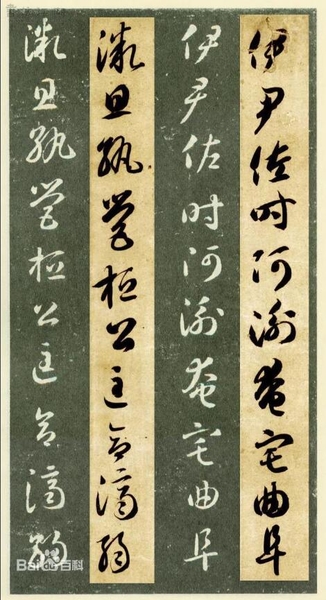 伊尹佐時阿衡奄宅曲阜
伊尹佐時阿衡奄宅曲阜
微旦孰營桓公匡合濟弱
微旦孰營桓公匡合濟弱
Bai百科